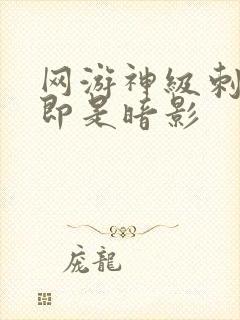 网游神级刺
即是暗影
庞龍